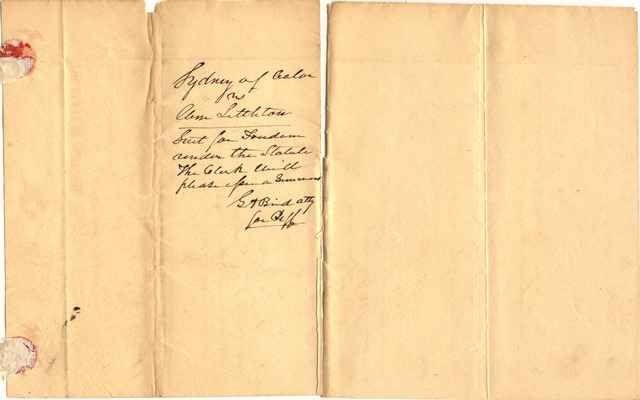 Sydney of Color
vs
Clem Littleton
Suit for Freedom
under the Statute
The Clerk will
please issue a Summons
Bird atty
for Plff